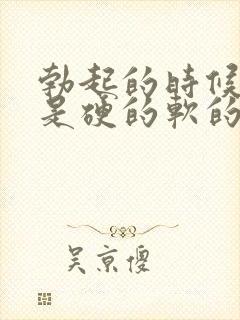 勃起的時候
是硬的軟的
吴京傻